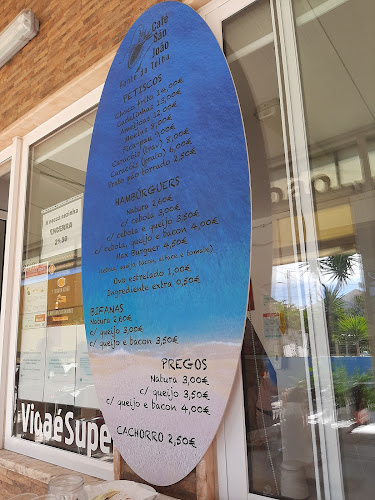 Café
São
João
Fonte da Telha
PETISCOS
Choco frito 14,00€
Conquilhas 13,00€
Amêijoas 12,00€
Moelas 5,00€
Pica-pau 9,00€
Caracóis (trav.) 8,00€
Caracóis (prato) 6,00€
Prato pão torrado 2,50€
HAMBÚRGUERS
Natura 2,60€
c/ cebola 3,00€
c/ cebola e queijo 3,50€
c/ cebola, queijo e bacon 4,00€
Max Burguer 4,50€
Ovo estrelado 1,00€
Ingrediente extra 0,50€
BIFANAS
Natura 2,60€
c/ queijo 3,00€
c/ queijo e bacon 3,50€
PREGOS
Natura 3,00€
c/ queijo 3,50€
c/ queijo e bacon 4,00€
CACHORRO 2,50€
A nossa cozinha
ENCERRA
21:30